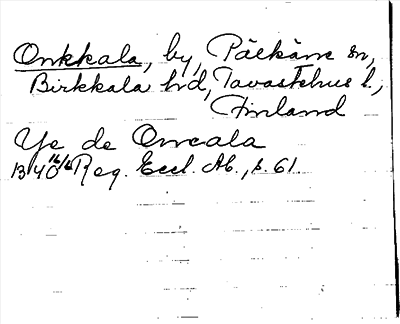 Onkkala, by, Pälkäne sn,
Birkkala hd, Tavastehus l.,
Finland
Ye de Oncala
1340 16/6 Reg. Eccl. Ab., s. 61